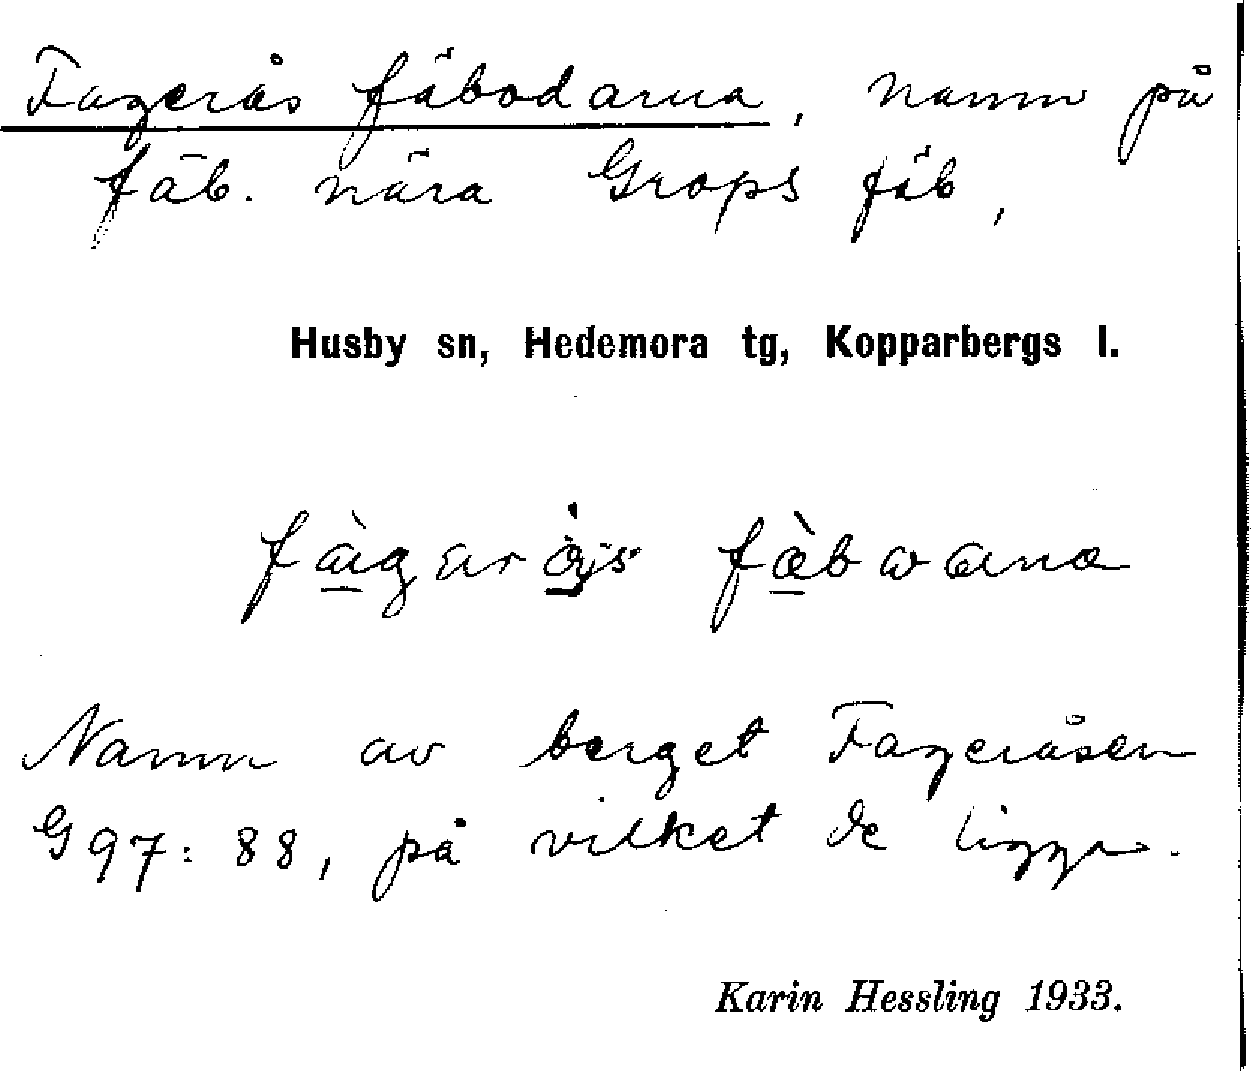 Fagerås fäbodarna, namn på
fäb. nära Grops fäb,
Husby sn, Hedemora tg, Kopparbergs l.
Namn av berget Fageråsen
G 97: 88, på vilket de ligger.
Karin Hessling 1933.